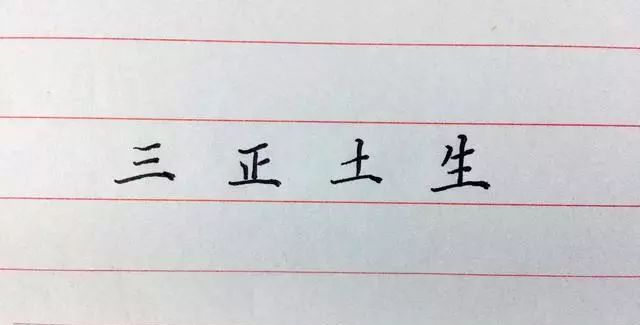 三正土生